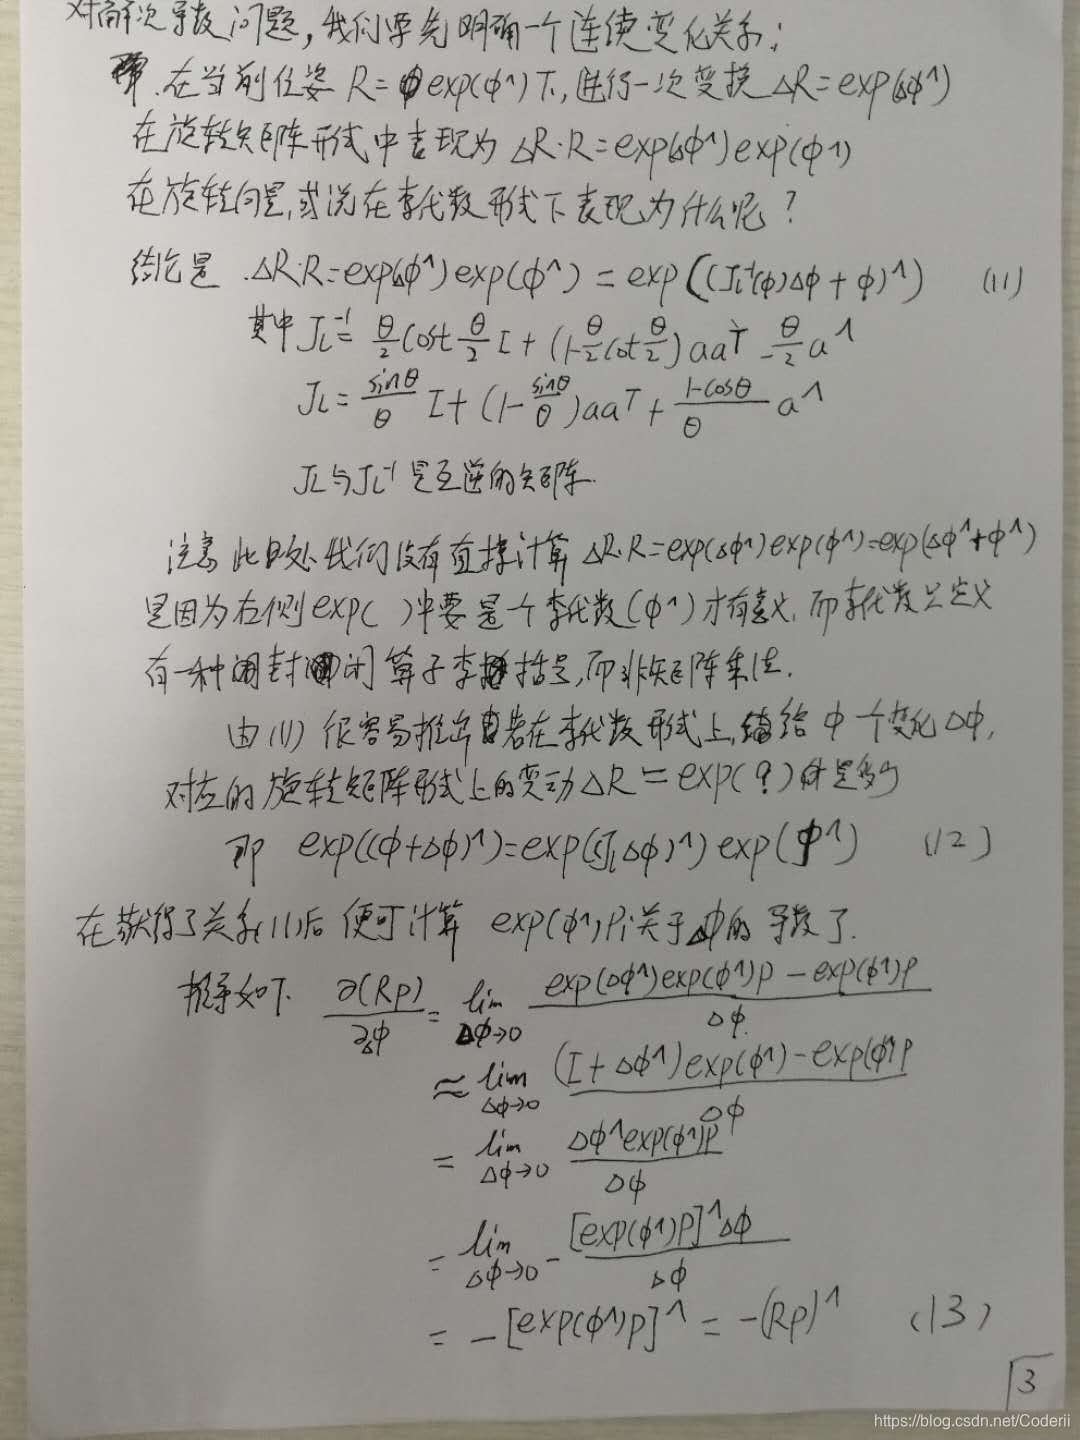 对解次导数问题,我们要先明确一个连续变化关系;
在当前位姿 R=exp(φ^)下,进行一次变换 ΔR=exp(Δφ^)
在旋转矩阵形式中表现为 ΔR·R=exp(Δφ^)exp(φ^)
在旋转向量,或说在李代数形式下表现为什么呢?
结论是 ΔR·R=exp(Δφ^)exp(φ^)=exp((JL⁻¹(φ)Δφ+φ)^) (11)
其中 JL⁻¹= θ/2 cot θ/2 I+(1-θ/2 cot θ/2)aaᵀ-θ/2 a^
JL= sinθ/θ I+(1-sinθ/θ)aaᵀ+ 1-cosθ/θ a^
JL与JL⁻¹是互逆的矩阵.
注意此处我们没有直接计算 ΔR·R=exp(Δφ^)exp(φ^)=exp(Δφ^+φ^)
是因为右侧exp( )中要是个李代数(φ^)才有意义,而李代数只定义
有一种封闭算子李括号,而非矩阵乘法.
由(11)很容易推出若在李代数形式上,给φ一个变化Δφ,
对应的旋转矩阵形式上的变动ΔR=exp(?)是多少
即 exp((φ+Δφ)^)=exp((JLΔφ)^)exp(φ^) (12)
在获得了关系(11)后 便可计算 exp(φ^)Pi关于Δφ的导数了.
推导如下. ∂(Rp)/∂Δφ = lim Δφ→0 exp(Δφ^)exp(φ^)p-exp(φ^)p/Δφ
≈ lim Δφ→0 (I+Δφ^)exp(φ^)-exp(φ^)p/Δφ
= lim Δφ→0 Δφ^exp(φ^)p/Δφ
= lim Δφ→0 - [exp(φ^)p]^Δφ/Δφ
= -[exp(φ^)p]^ = -(Rp)^ (13)
3
https://blog.csdn.net/Coderii